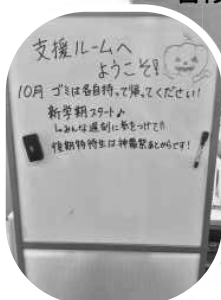 支援ルームへ
ようこそ!
10月 ゴミは各自持って帰ってください!
新学期スタート♪
みんな遅刻に気をつけて!!
後期特待生は神霜祭あとからです!